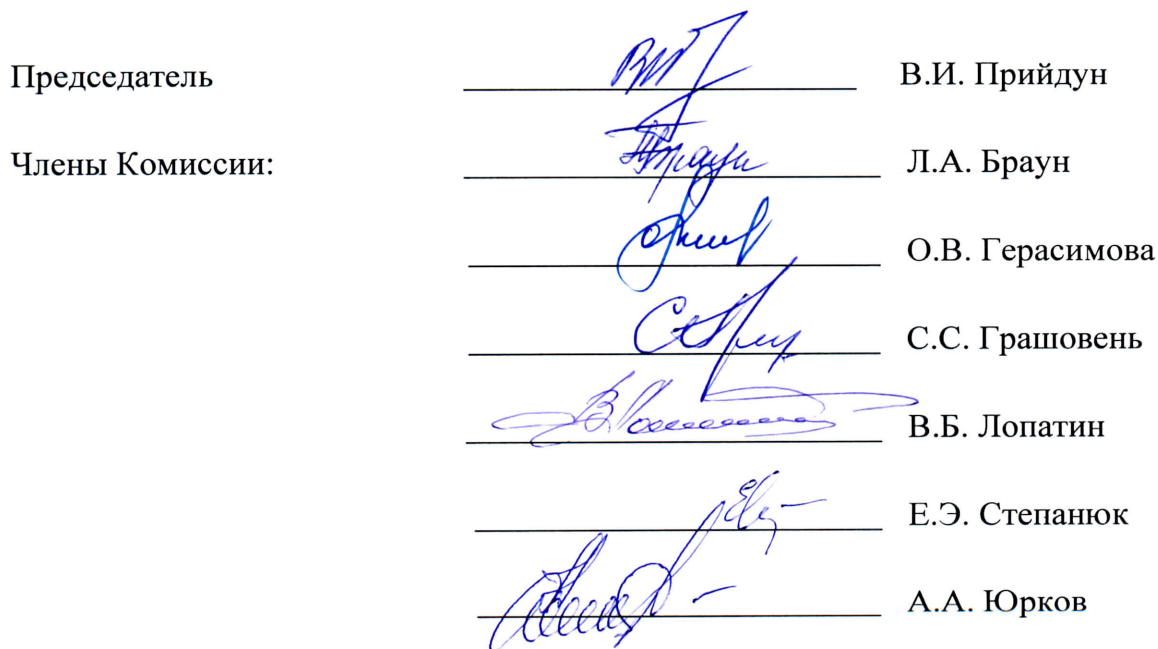 Председатель В.И. Прийдун
Члены Комиссии: Л.А. Браун
О.В. Герасимова
С.С. Грашовень
В.Б. Лопатин
Е.Э. Степанюк
А.А. Юрков